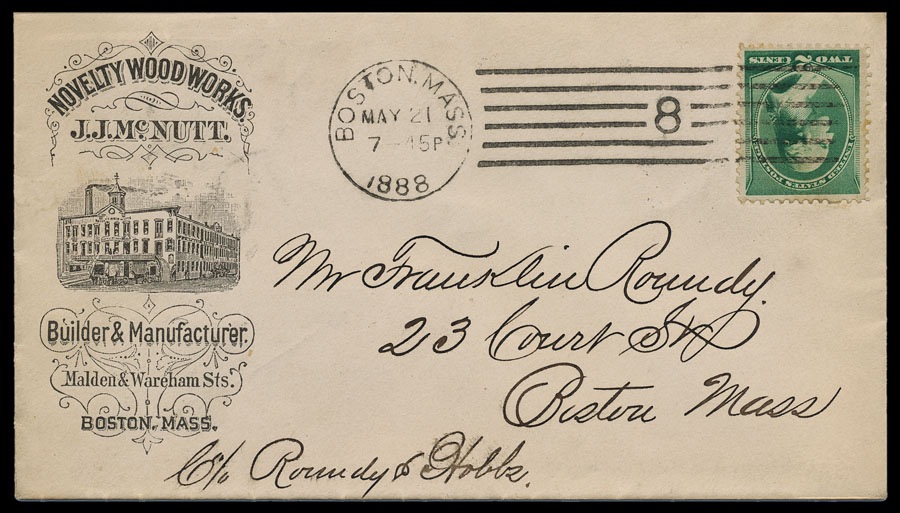 NOVELTY WOOD WORKS.
J.J. McNUTT.
Builder & Manufacturer.
Malden & Wareham Sts.
BOSTON, MASS.
BOSTON, MASS.
MAY 21
7-45P
1888
8
TWO 2 CENTS
UNITED STATES POSTAGE
Mr Franklin Roundy.
23 Court St
Boston Mass
C/o Roundy & Hobbs.